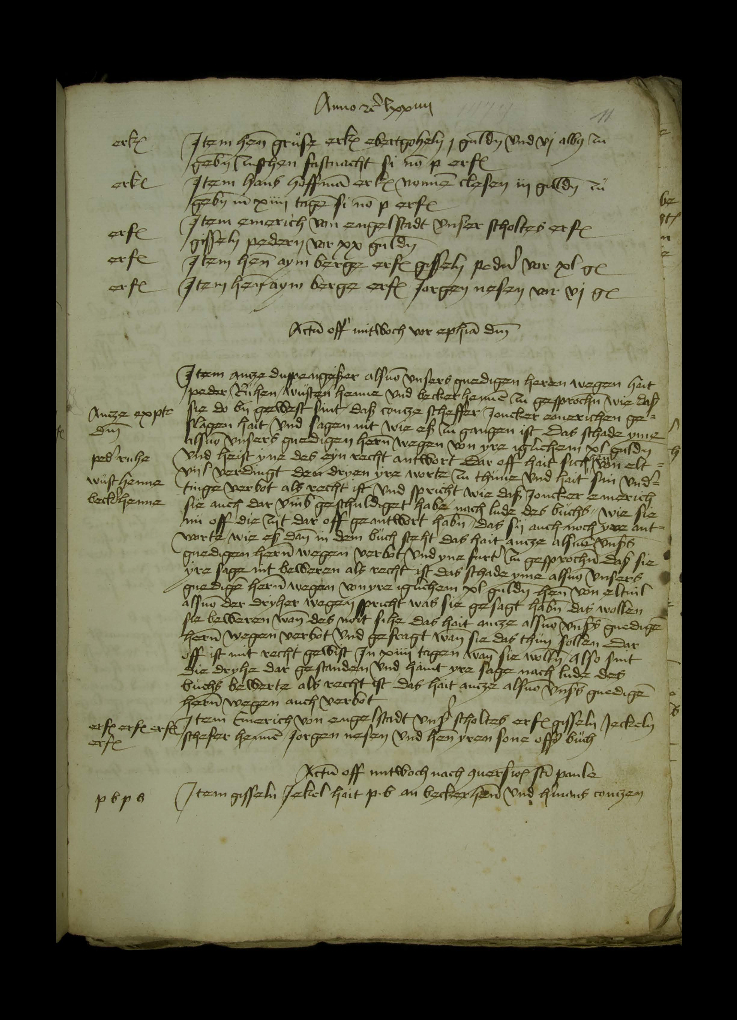 Anno etc lxxiiii
11
erk Item hen gruße erk ebertgoheln j guldn vnd vj albus zu
gebn zuschen fastnacht si no p erfℓ
erk Item hans hoffman erk nomen clesen iij guldn zu
gebn in xiiij tage si no p erfℓ
erfℓ Item emerich von engelstadt vnser scholtes erfℓ
gisseln pedern vor xx guldn
erfℓ Item hen aym berge erfℓ gisseln peder vor xl gℓ
erfℓ Item hen aym berge erfℓ Jorgen nesen vor vj gℓ
Actum off mitwoch vor epphia dm
Item ancze duppengeßer als von vnsers gnedigen heren wegen hait
peder Ruhen, wusten henne vnd becker henne zu gesprochn wie daß
sie do by gewest sint daß contze scheffer Joncker emerichen ge-
slagen hait vnd sagen nit wie eß zu gangen ist das schade yme
als von vnsers gnedigen hern wegen von yre iglichem xl guldn
vnd heist yne des eyn recht antwort dar off hait sich hen von elt-
vil verdingt den dryen yre worte zu thune vnd hait sin vnder-
tinge verbot als recht ist vnd spricht wie daß Joncker emerich
sie auch dar vmb geschuldiget habe nach lude des buchs, wie sie
im off die zijt dar off geantwort habn, das sij auch noch yre ant-
worte wie eß dan in dem buch steht das hait ancze als von vnsers
gnedigen hern wegen verbot vnd yne furter zu gesprochn daß sie
yre sage nit beweren als recht ist das schade yme als von vnsers
gnedigen hern wegen von yre iglichem xl guldn hen von eltuil
als von der dryher wegen spricht was sie gesagt habn das wollen
sie beweren wan des noit sihe das hait ancze als von vnsers gnedige
hern wegen verbot vnd gefragt wan sie das thun sollen dar
off ist mit recht gewist In xiiij tagen wan sie wolln also sint
die dryhe dar gestanden vnd hant yre sage nach lude des
buchs bewerte als recht ist das hait ancze als von vnsers gnedige
hern wegen auch verbot
Ancze ex parte
dm
peder ruhe
wust henne
becker henne
erfℓ erfℓ erfℓ Item Emerich von engelstadt vnser scholtes erfℓ gisseln Jeckeln
erfℓ schefer henne Jorgen nesen vnd hen yren sone offs buch
Actum off mitwoch nach conuersionis sti paule
p b p b Item gisseln Jekel hait p.b an beckerhen vnd contzen